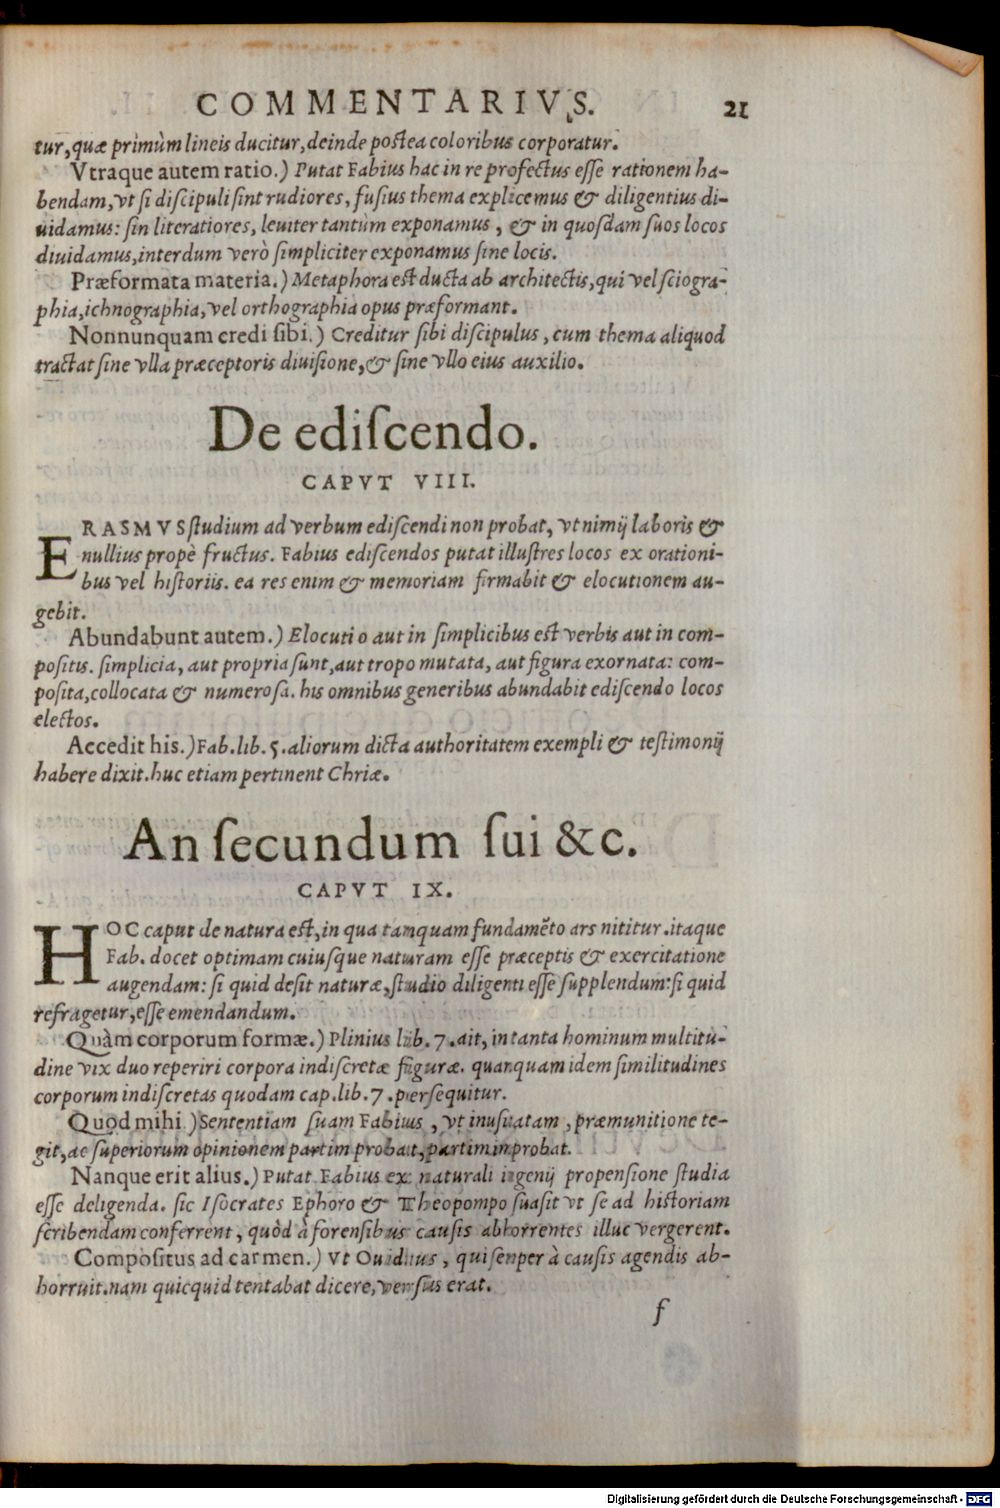 COMMENTARIVS. 21
tur, quæ primùm lineis ducitur, deinde postea coloribus corporatur.
Vtraque autem ratio.) Putat Fabius hac in re profectus esse rationem ha-
bendam, vt si discipuli sint rudiores, fusius thema explicemus & diligentius di-
uidamus: sin literatiores, leuiter tantùm exponamus, & in quosdam suos locos
diuidamus, interdum verò simpliciter exponamus sine locis.
Præformata materia.) Metaphora est ducta ab architectis, qui vel sciogra-
phia, ichnographia, vel orthographia opus præformant.
Nonnunquam credi sibi.) Creditur sibi discipulus, cum thema aliquod
tractat sine vlla præceptoris diuisione, & sine vllo eius auxilio.
De ediscendo.
CAPVT VIII.
ERASMVS studium ad verbum ediscendi non probat, vt nimij laboris &
nullius propè fructus. Fabius ediscendos putat illustres locos ex orationi-
bus vel historiis. ea res enim & memoriam firmabit & elocutionem au-
gebit.
Abundabunt autem.) Elocutio aut in simplicibus est verbis aut in com-
positis. simplicia, aut propria sunt, aut tropo mutata, aut figura exornata: com-
posita, collocata & numerosa. his omnibus generibus abundabit ediscendo locos
electos.
Accedit his.) Fab. lib. 5. aliorum dicta authoritatem exempli & testimonij
habere dixit. huc etiam pertinent Chriæ.
An secundum sui &c.
CAPVT IX.
HOC caput de natura est, in qua tamquam fundamẽto ars nititur. itaque
Fab. docet optimam cuiusque naturam esse præceptis & exercitatione
augendam: si quid desit naturæ, studio diligenti esse supplendum: si quid
refragetur, esse emendandum.
Quàm corporum formæ.) Plinius lib. 7. ait, in tanta hominum multitu-
dine vix duo reperiri corpora indiscretæ figuræ. quanquam idem similitudines
corporum indiscretas quodam cap. lib. 7. persequitur.
Quod mihi.) Sententiam suam Fabius, vt inusitatam, præmunitione te-
git, ac superiorum opinionem partim probat, partim improbat.
Nanque erit alius.) Putat Fabius ex naturali ingenij propensione studia
esse deligenda. sic Isocrates Ephoro & Theopompo suasit vt se ad historiam
scribendam conferrent, quòd à forensibus causis abhorrentes illuc vergerent.
Compositus ad carmen.) Vt Ouidius, qui semper à causis agendis ab-
horruit. nam quicquid tentabat dicere, versus erat.
f
Digitalisierung gefördert durch die Deutsche Forschungsgemeinschaft - DFG